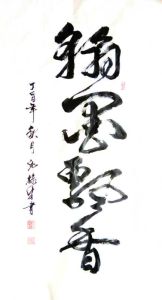 翰墨飘香
丁酉年秋月
书